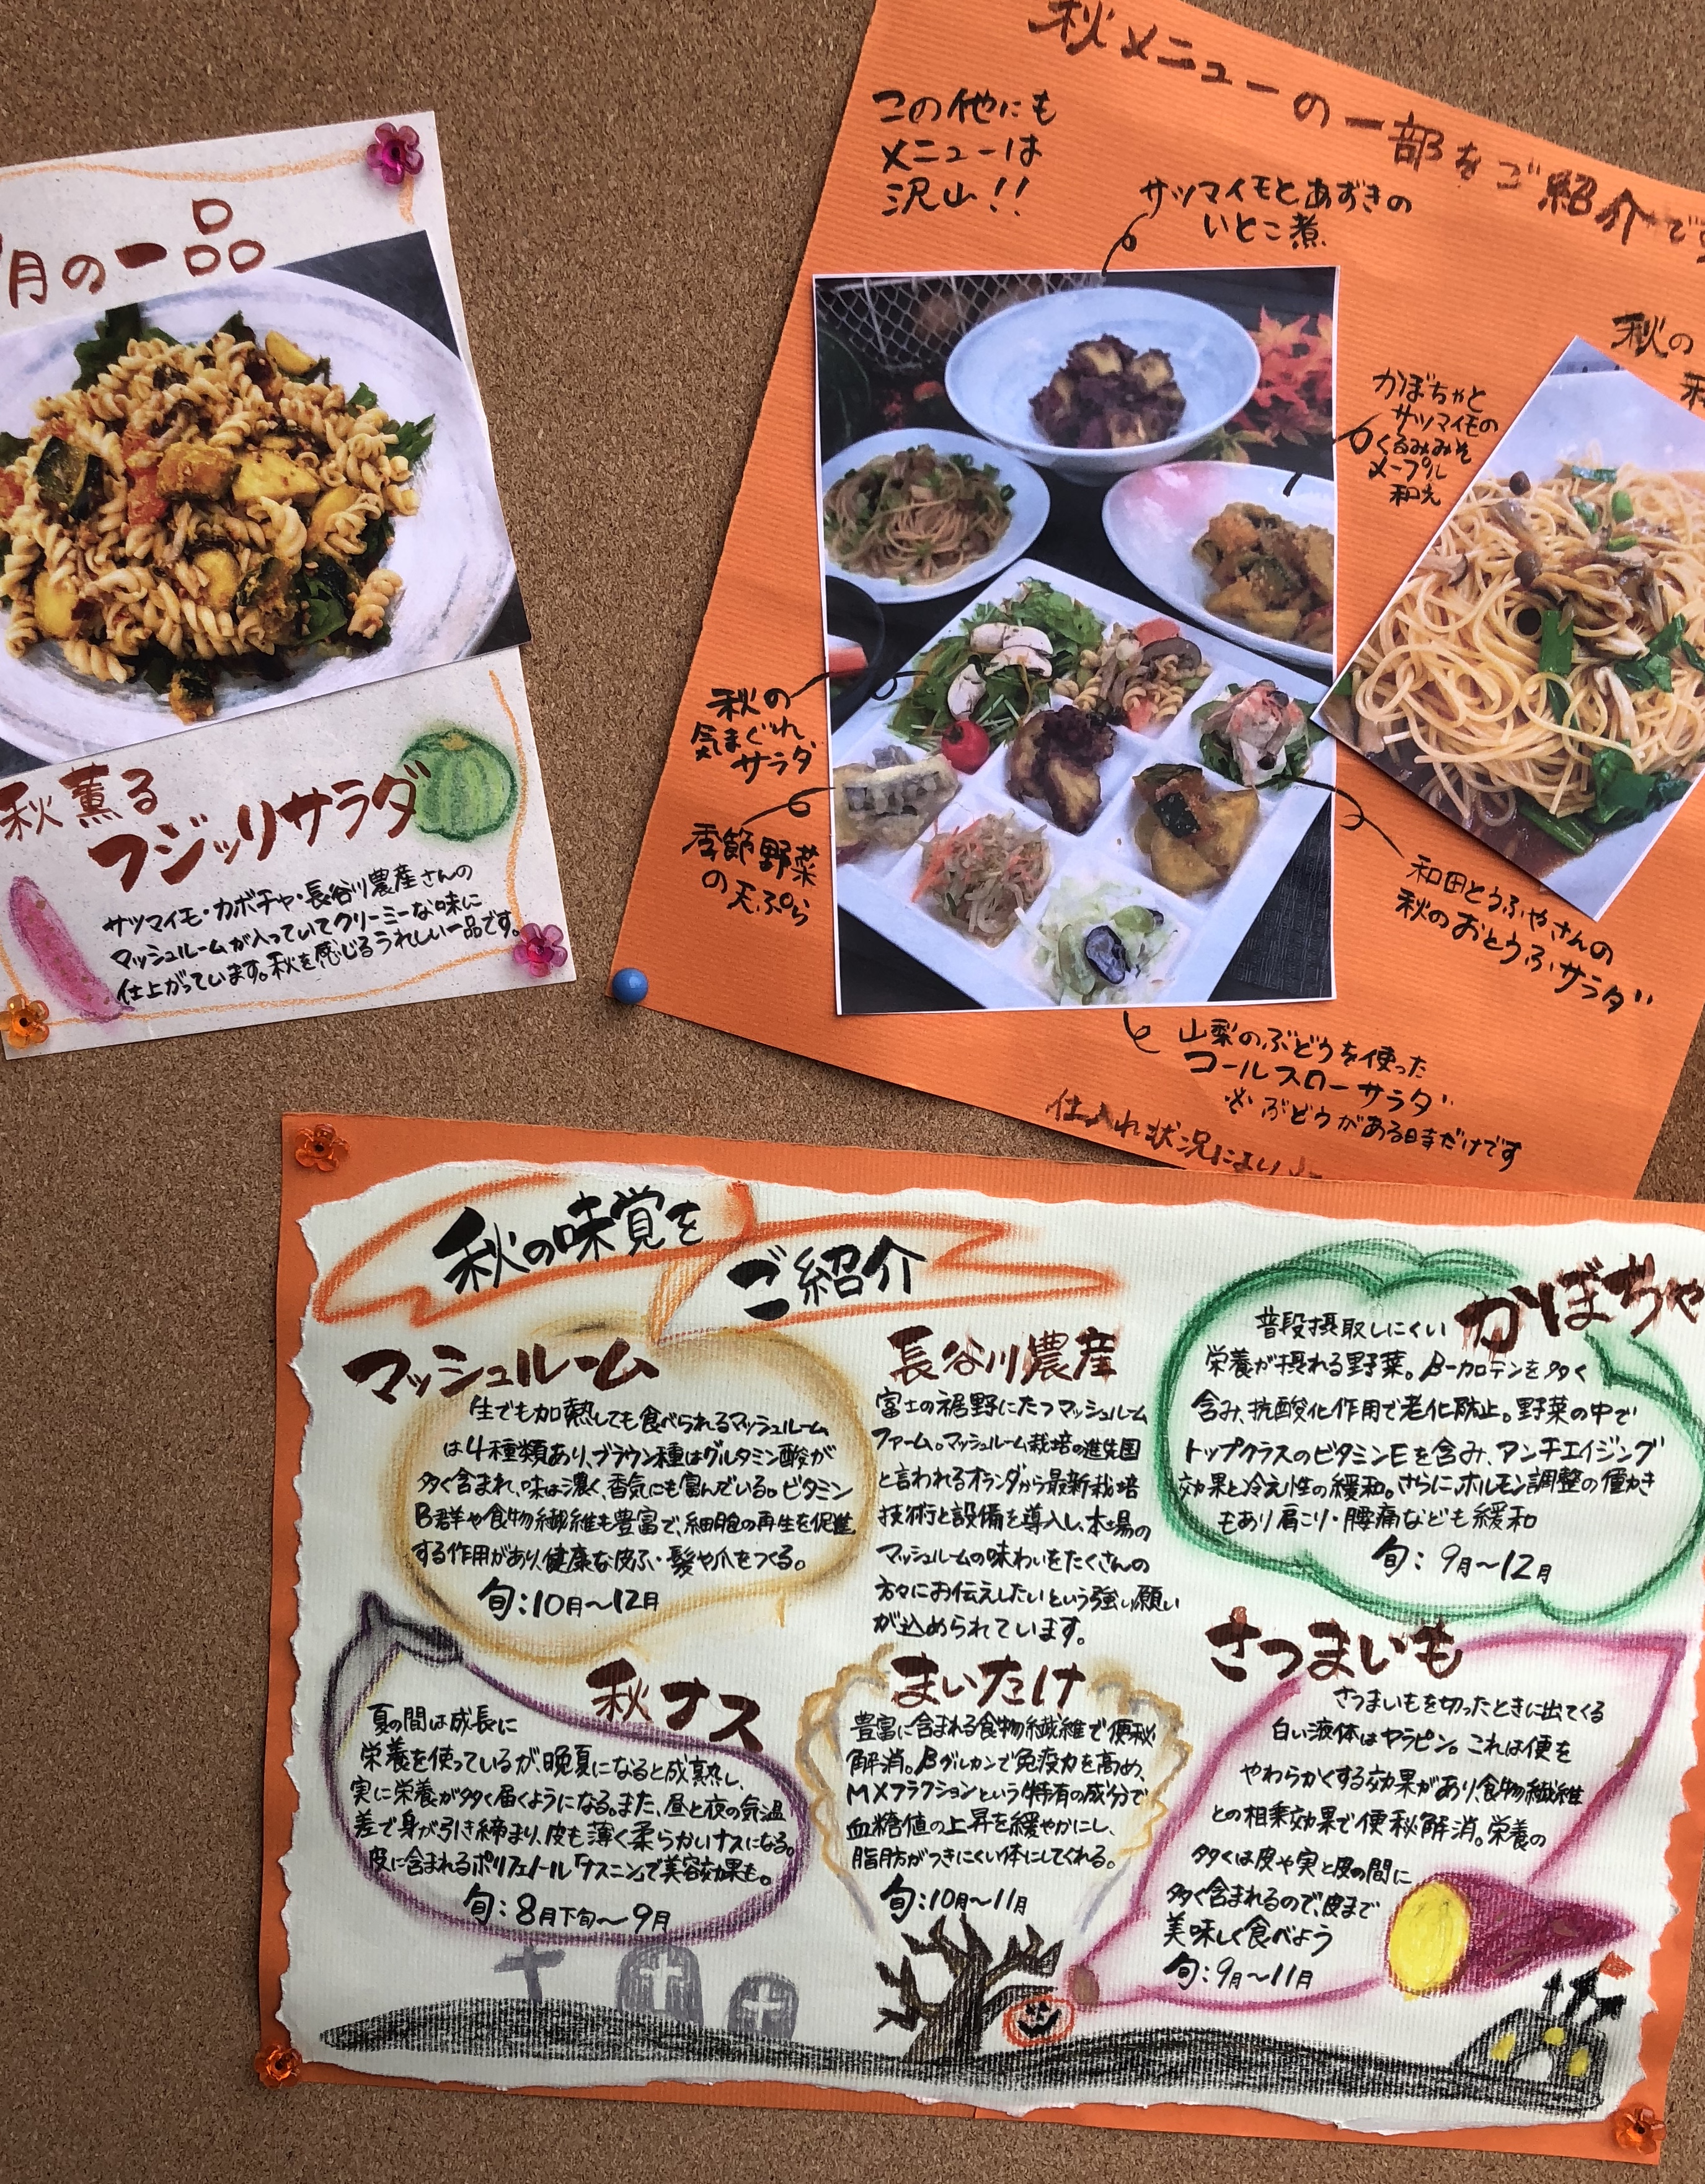 月の一品
秋薫る
フジッリサラダ
サツマイモ・カボチャ・長谷川農産さんの
マッシュルームが入っていてクリーミーな味に
仕上がっています。秋を感じるうれしい一品です。
秋メニューの一部をご紹介です
この他にも
メニューは
沢山!!
サツマイモとあずきの
いとこ煮
秋の
かぼちゃと
サツマイモの
くるみみそ
メープル
和え
秋の
気まぐれ
サラダ
季節野菜
の天ぷら
和田とうふやさんの
秋のおとうふサラダ
山梨のぶどうを使った
コールスローサラダ
※ぶどうがある時だけです
仕入れ状況により
秋の味覚を
ご紹介
マッシュルーム
生でも加熱しても食べられるマッシュルーム
は4種類あり、ブラウン種はグルタミン酸が
多く含まれ、味は濃く、香気にも富んでいる。ビタミン
B群や食物繊維も豊富で、細胞の再生を促進
する作用があり、健康な皮ふ・髪や爪をつくる。
旬:10月〜12月
長谷川農産
富士の裾野にたつマッシュルーム
ファーム。マッシュルーム栽培の進先国
と言われるオランダから最新栽培
技術と設備を導入し、本場の
マッシュルームの味わいをたくさんの
方々にお伝えしたいという強い願い
が込められています。
かぼちゃ
普段摂取しにくい
栄養が摂れる野菜。β-カロテンを多く
含み、抗酸化作用で老化防止。野菜の中で
トップクラスのビタミンEを含み、アンチエイジング
効果と冷え性の緩和。さらに、ホルモン調整の働き
もあり肩こり・腰痛なども緩和
旬:9月〜12月
秋ナス
夏の間は成長に
栄養を使っているが、晩夏になると成熟し、
実に栄養が多く届くようになる。また、昼と夜の気温
差で身が引き締まり、皮も薄く柔らかいナスになる。
皮に含まれるポリフェノール「ナスニン」で美容効果も。
旬:8月下旬〜9月
まいたけ
豊富に含まれる食物繊維で便秘
解消。βグルカンで免疫力を高め、
MXフラクションという特有の成分で
血糖値の上昇を緩やかにし、
脂肪がつきにくい体にしてくれる。
旬:10月〜11月
さつまいも
さつまいもを切ったときに出てくる
白い液体はヤラピン。これは便を
やわらかくする効果があり、食物繊維
との相乗効果で便秘解消。栄養の
多くは皮や実と皮の間に
多く含まれるので、皮まで
美味しく食べよう
旬:9月〜11月